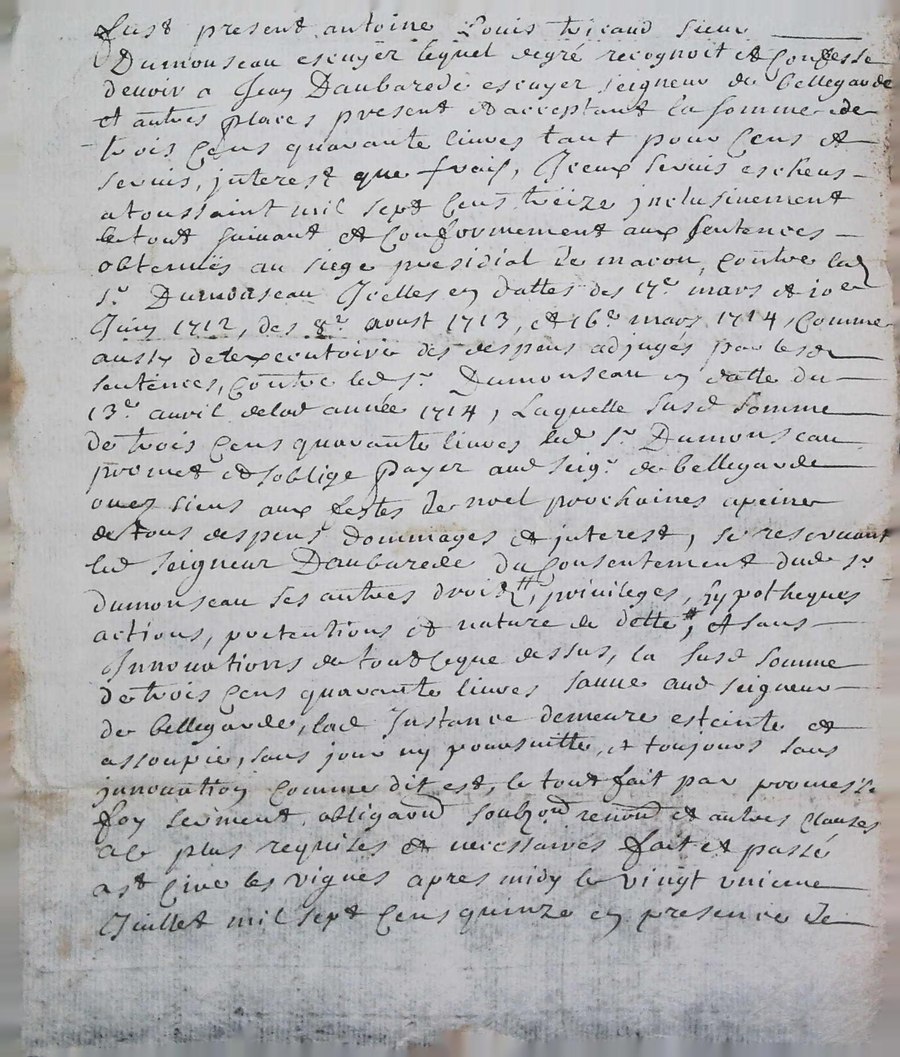 fust present antoine Louis tricaud sieur
Dumonseau escuyer lequel degré recognoit et Confesse
devoir a Jean Daubarede escuyer seigneur de bellegarde
et autres places present et acceptant la somme de
trois Cens quarante livres tant pour Cens et
servis, interest que frais, Iceux servis escheus
a toussaint mil sept Cens treize inclusivement
le tout suivant et Conformement aux sentences
obtenües au siege presidial de macon, Contre led
Sr. Dumonseau Icelles en dattes des 17e. mars et 20en
Juin 1712, des 8e. aoust 1713, et 16e. mars 1714, Comme
aussy de lexecutoire des despens adjugés par lesd
sentences, Contre led Sr. Dumonseau en datte du
13e. avril delad année 1714, Laquelle susd somme
de trois Cens quarante livres led Sr. Dumonseau
promet et soblige payer aud seigr. de bellegarde
ou es siens aux festes de noel prochaines a peine
de tous despens dommages et interest, se reservant
led seigneur Daubarede du Consentement dud Sr.
dumonseau ses autres droits, privileges, hypotheques
actions, pretentions et nature de dette, et sans
Innovations de tout Ceque dessus, la susd somme
de trois Cens quarante livres sauve aud seigneur
de bellegarde, lad Instance demeure esteinte et
assoupie, sans jour ny poursuitte, et toujours sans
innovation Comme dit est, le tout fait par promesse
foy serment obligaond soubzond renond et autres Clauses
a Ce plus requises et necessaires fait et passé
a st Cire les vignes apres midy le vingt unieme
Juillet mil sept Cens quinze en presence de